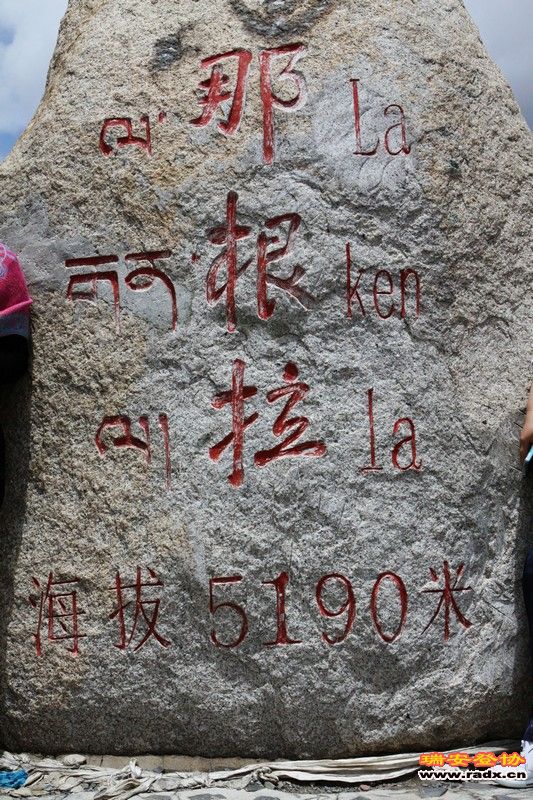 ལ་ 那 La
གན་ 根 ken
ལ། 拉 la
海拔 5190米
瑞安登协
www.radx.cn